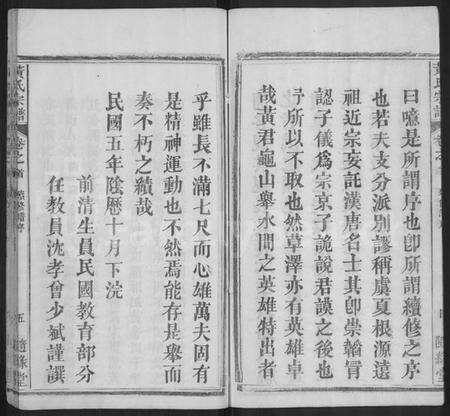 曰噫是所謂序也卽所謂續修之序
也若夫支分派別謬稱虞夏根源遠
祖近宗妄託漢唐名士其卽崇韜冐
認子儀爲宗京子詭說君謨之後也
所以不取也然草澤亦有英雄卓
哉黃君龜山舉水間之英雄特出者
乎雖長不滿七尺而心雄萬夫固有
是精神運動也不然焉能存是舉而
奏不朽之績哉
民國五年陰歷十月下浣
前清生員民國教育部分
任教員沈孝曾少斌謹譔
黃氏宗譜
卷之首
五
堂